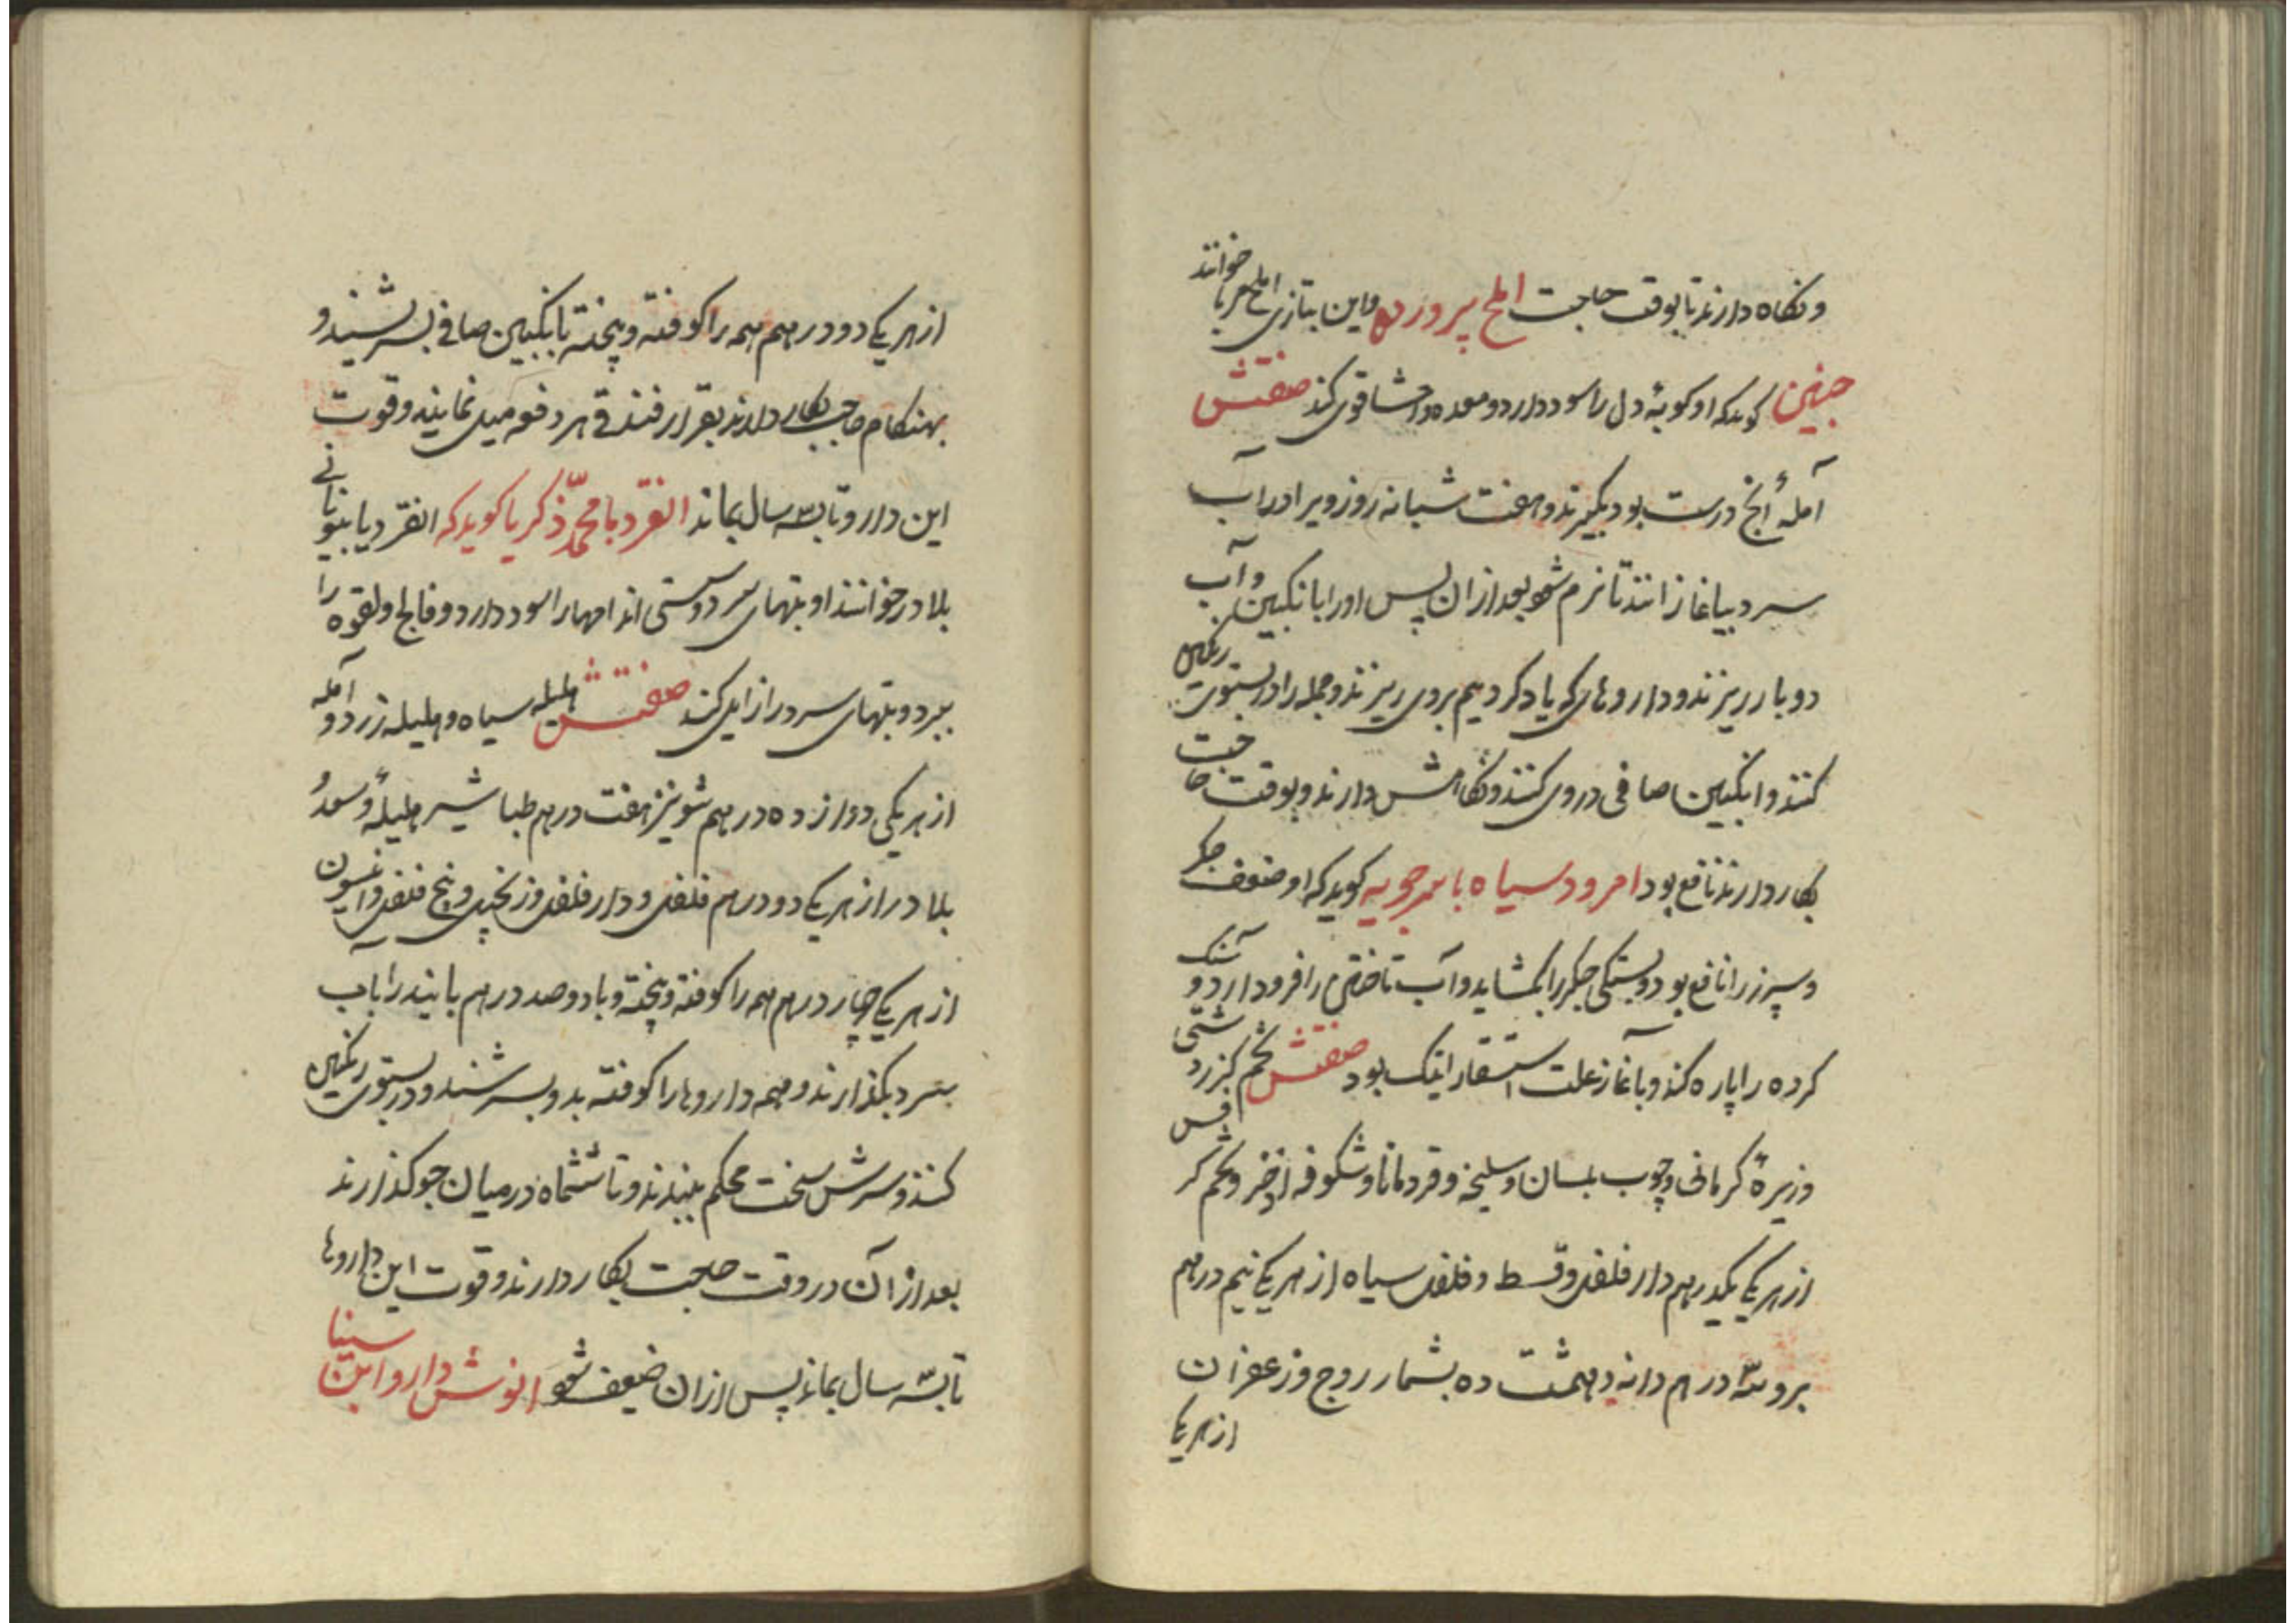 و نگاه دارند تا بوقت حاجت املج پرورده و این بتازی املج مربا خوانند
حنین کوید که او کوبهٔ دل را سود دارد و معده و احشا قوی کند صفتش
آملهٔ آنچ درست بود بکیرند و هفت شبانه روز ویرا در آب
سرد بیاغازانند تا نرم شود بعد از ان پس اورا بانکبین و آب
دو بار ریزند و داروهای که یاد کردیم بروی ریزند و جمله را در بستوی رنکین
کنند و انکبین صافی دروی کنند و نکاهش دارند و بوقت حاجت
بکار دارند نافع بود امرود سیاه ماسرجویه کوید که او ضعف جکر
و سپرز را نافع بود و بستکی جکر را بکشاید و آب تاختن را فرود آرد و سنک
کرده را پاره کند و بآغاز علت استسقا را نیک بود صفتش تخم کزر دشتی
و زیرهٔ کرمانی و چوب بلسان و سلیخه و قردمانا و شکوفه اذخر و تخم کرفس
از هر یکی یکدرهم دار فلفل و قسط و فلفل سیاه از هر یکی نیم درهم
درهم دانه دهمشت ده بشمار و وج و زعفران
از هر یکی
از هر یکی دو درهم همه را کوفته و پخته بانکبین صافی بسرشند و
بهنکام حاجت بکار دارند بقرار فندقی هر دفعه میل نمایند و قوت
این دارو تا سه سال بماند انقردیا محمد ذکریا کوید که انقردیا بیونانی
بلادر خوانند او تبهای سرد و سستی اندامها را سود دارد و فالج و لقوه را
ببرد و تبهای سرد را زایل کند صفتش هلیله سیاه و هلیله زرد و آمله
از هر یکی دوازده درهم شونیز هفت درهم طباشیر هلیله و سعد
بلادر از هر یکی دو درهم فلفل و دار فلفل و زنجبیل و پنج فلفل و انیسون
از هر یکی چهار درهم همه را کوفته و پخته و با دو صد درهم پانیذ را باب
بسرد بکذارند و همه داروها را کوفته بدو بسرشند و در بستوی رنکین
کنند و سرش سخت محکم ببندند و تا ششماه در میان جو کذارند
بعد از آن در وقت حاجت بکار دارند و قوت این داروها
تا سه سال بماند پس از ان ضعیف شود انوش دارو ابن سینا